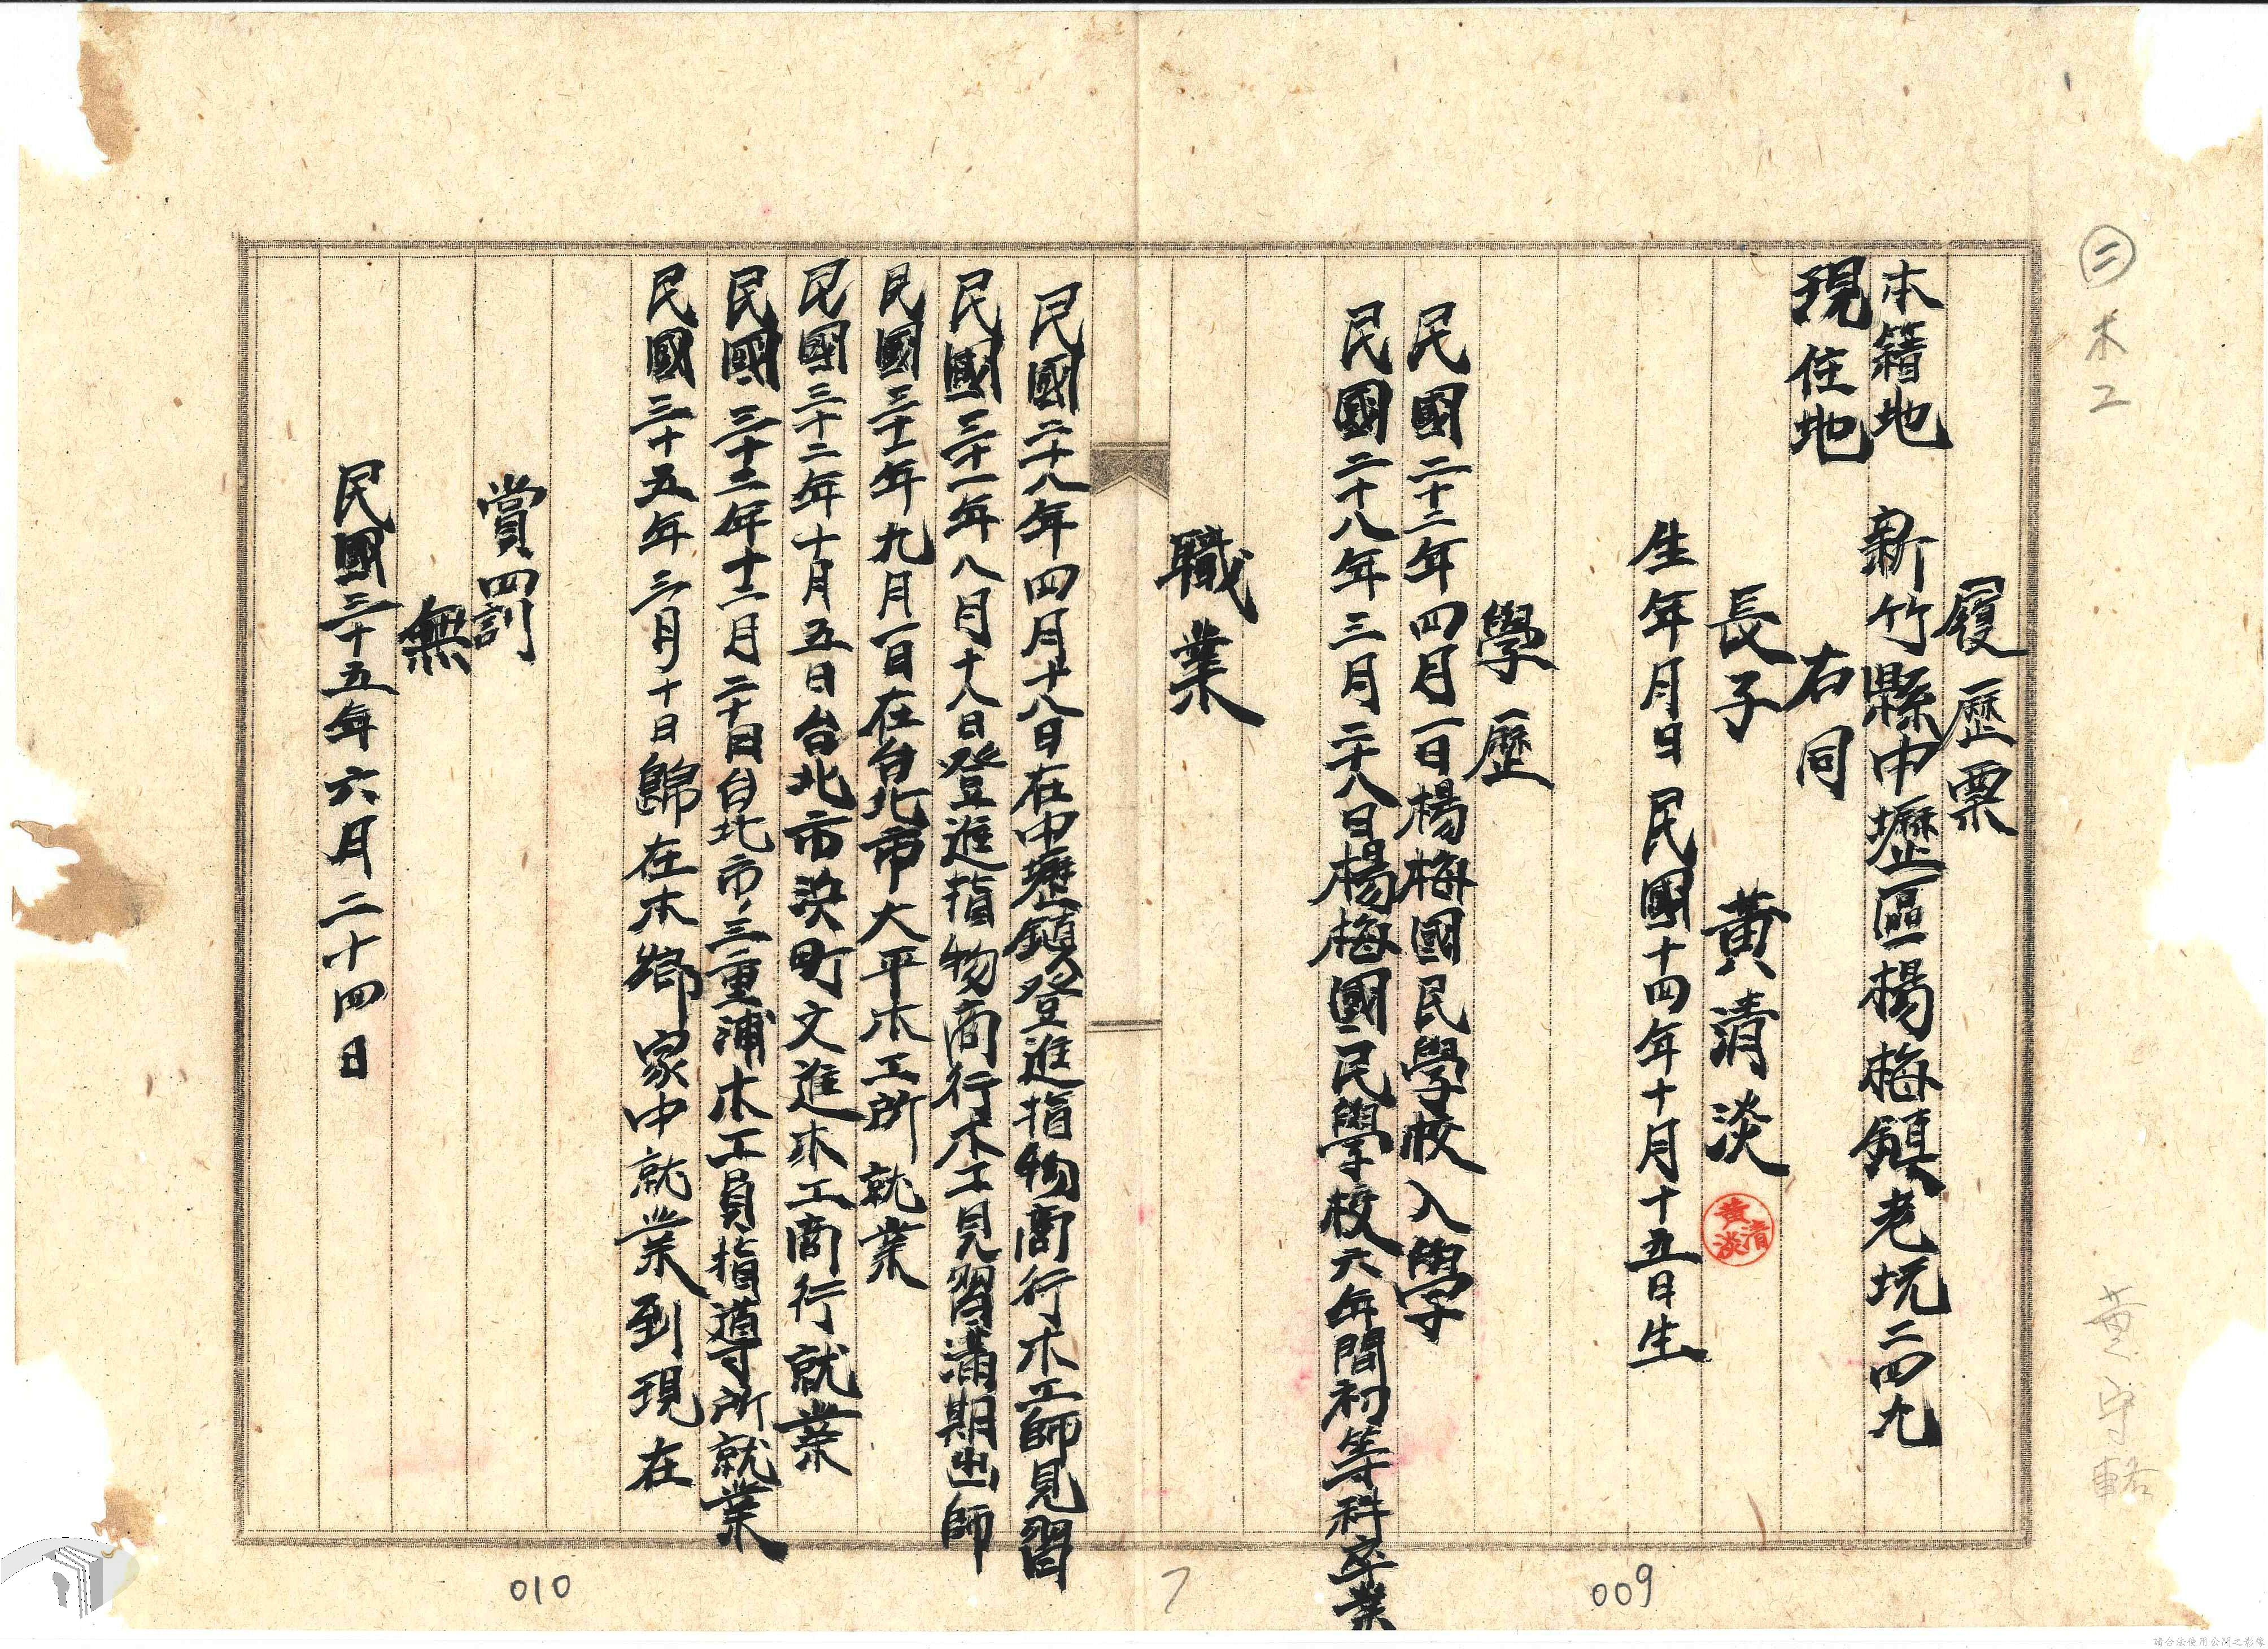 ㊁木工
履歷票
本籍地 新竹縣中壢區楊梅鎮老坑二四九
現住地 右同
長子 黃清淡
黃清淡
生年月日 民國十四年十月十五日生
學歷
民國二十二年四月一日楊梅國民學校入學
民國二十八年三月二十八日楊梅國民學校六年間初等科卒業
職業
民國二十八年四月十八日在中壢鎮登進指物商行木工師見習
民國三十一年八月十八日登進指物商行木工見習滿期出師
民國三十一年九月一日在台北市大平木工所就業
民國三十二年十月五日台北市町文進木工商行就業
民國三十二年十二月二十日台北市三重浦木工員指導所就業
民國三十五年三月十日歸在本鄉家中就業到現在
賞罰
無
民國三十五年六月二十四日
黃守
009
7
010
請合法使用公開之影像